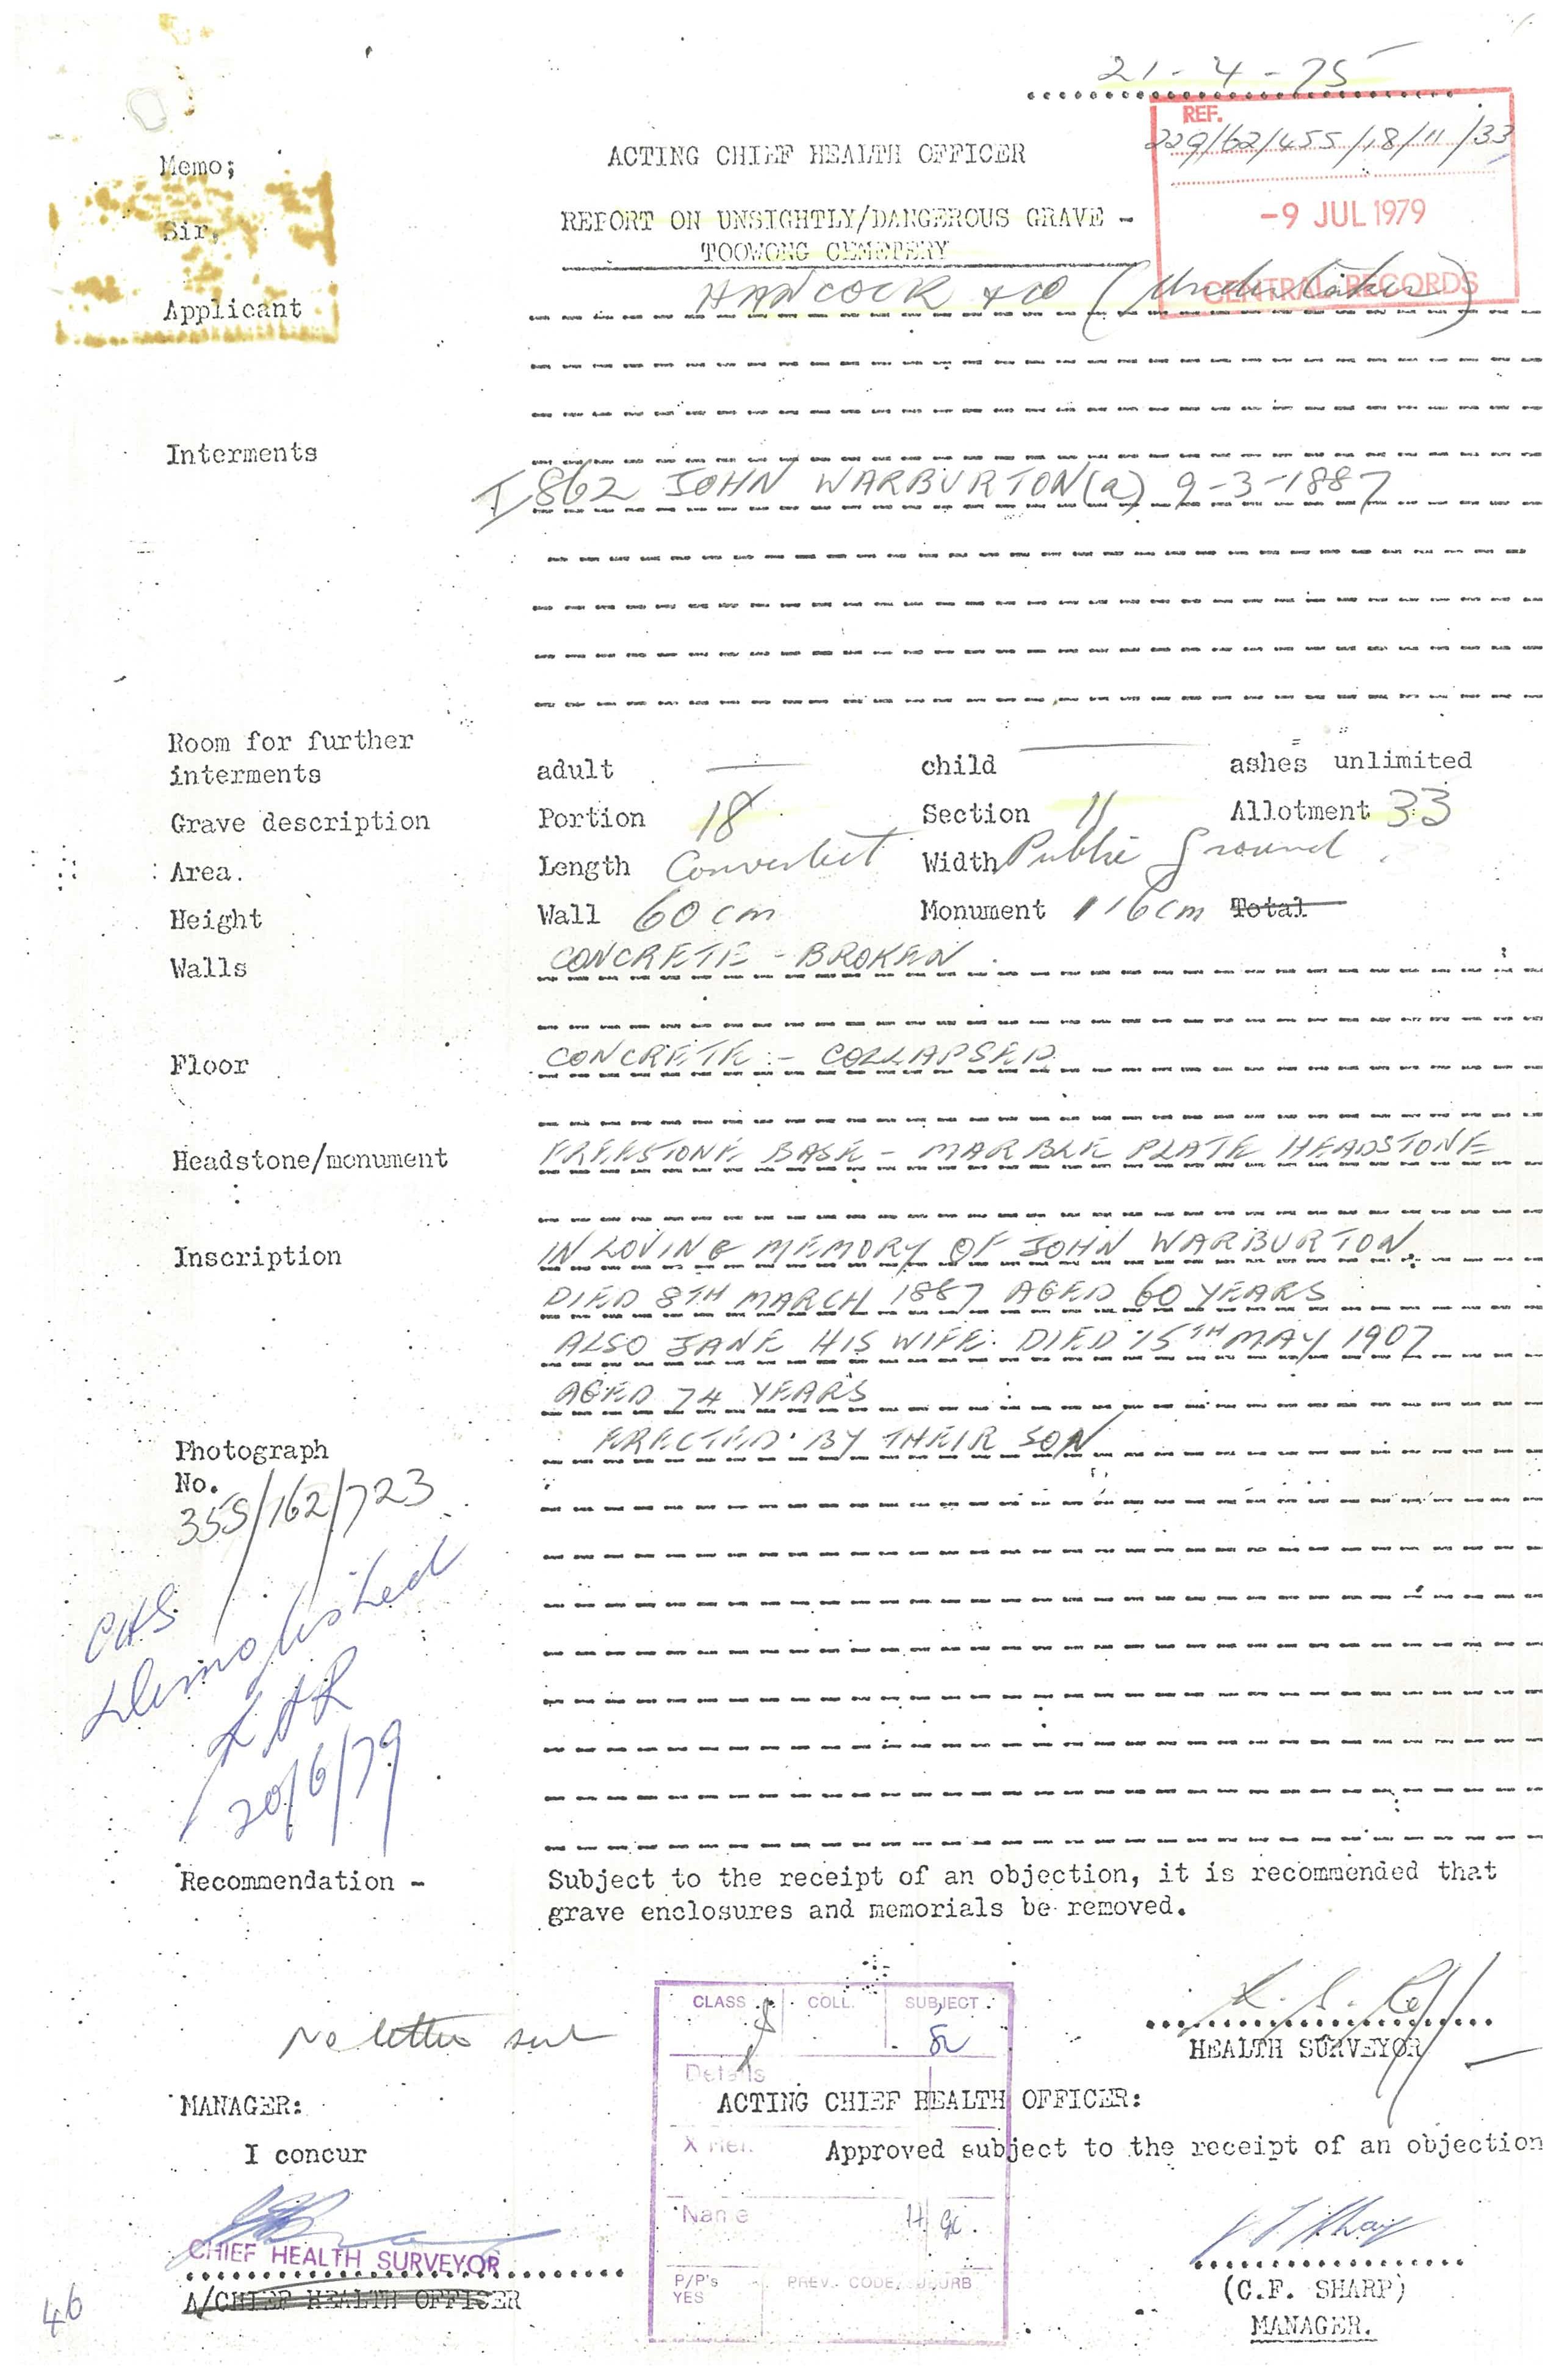 21-4-75
REF.
229/62/455/18/11/33
Memo;
ACTING CHIEF HEALTH OFFICER
-9 JUL 1979
Sir,
REPORT ON UNSIGHTLY/DANGEROUS GRAVE -
TOOWONG CEMETERY
CENTRAL RECORDS
Applicant HANCOCK & CO (Undertaker)
Interments
I 862 JOHN WARBURTON (a) 9-3-1887
Room for further
interments adult — child — ashes unlimited
Grave description Portion 18 Section 11 Allotment 33
Area. Length Converted Width Public Ground
Height Wall 60cm Monument 116cm Total
Walls CONCRETE - BROKEN
Floor CONCRETE - COLLAPSED
Headstone/monument FREESTONE BASE - MARBLE PLATE HEADSTONE
Inscription IN LOVING MEMORY OF JOHN WARBURTON
DIED 8TH MARCH 1887 AGED 60 YEARS
ALSO JANE HIS WIFE. DIED 15TH MAY 1907
AGED 74 YEARS
ERECTED BY THEIR SON
Photograph
No.
355/162/723
CHS
Demolished
20/6/79
Recommendation - Subject to the receipt of an objection, it is recommended that
grave enclosures and memorials be removed.
CLASS COLL. SUBJECT
No letter sent
HEALTH SURVEYOR
Details
MANAGER: ACTING CHIEF HEALTH OFFICER:
I concur X Ref. Approved subject to the receipt of an objection
Name
CHIEF HEALTH SURVEYOR
P/P's PREV. CODE/SUBURB
YES
A/CHIEF HEALTH OFFICER (C.F. SHARP)
46
MANAGER.